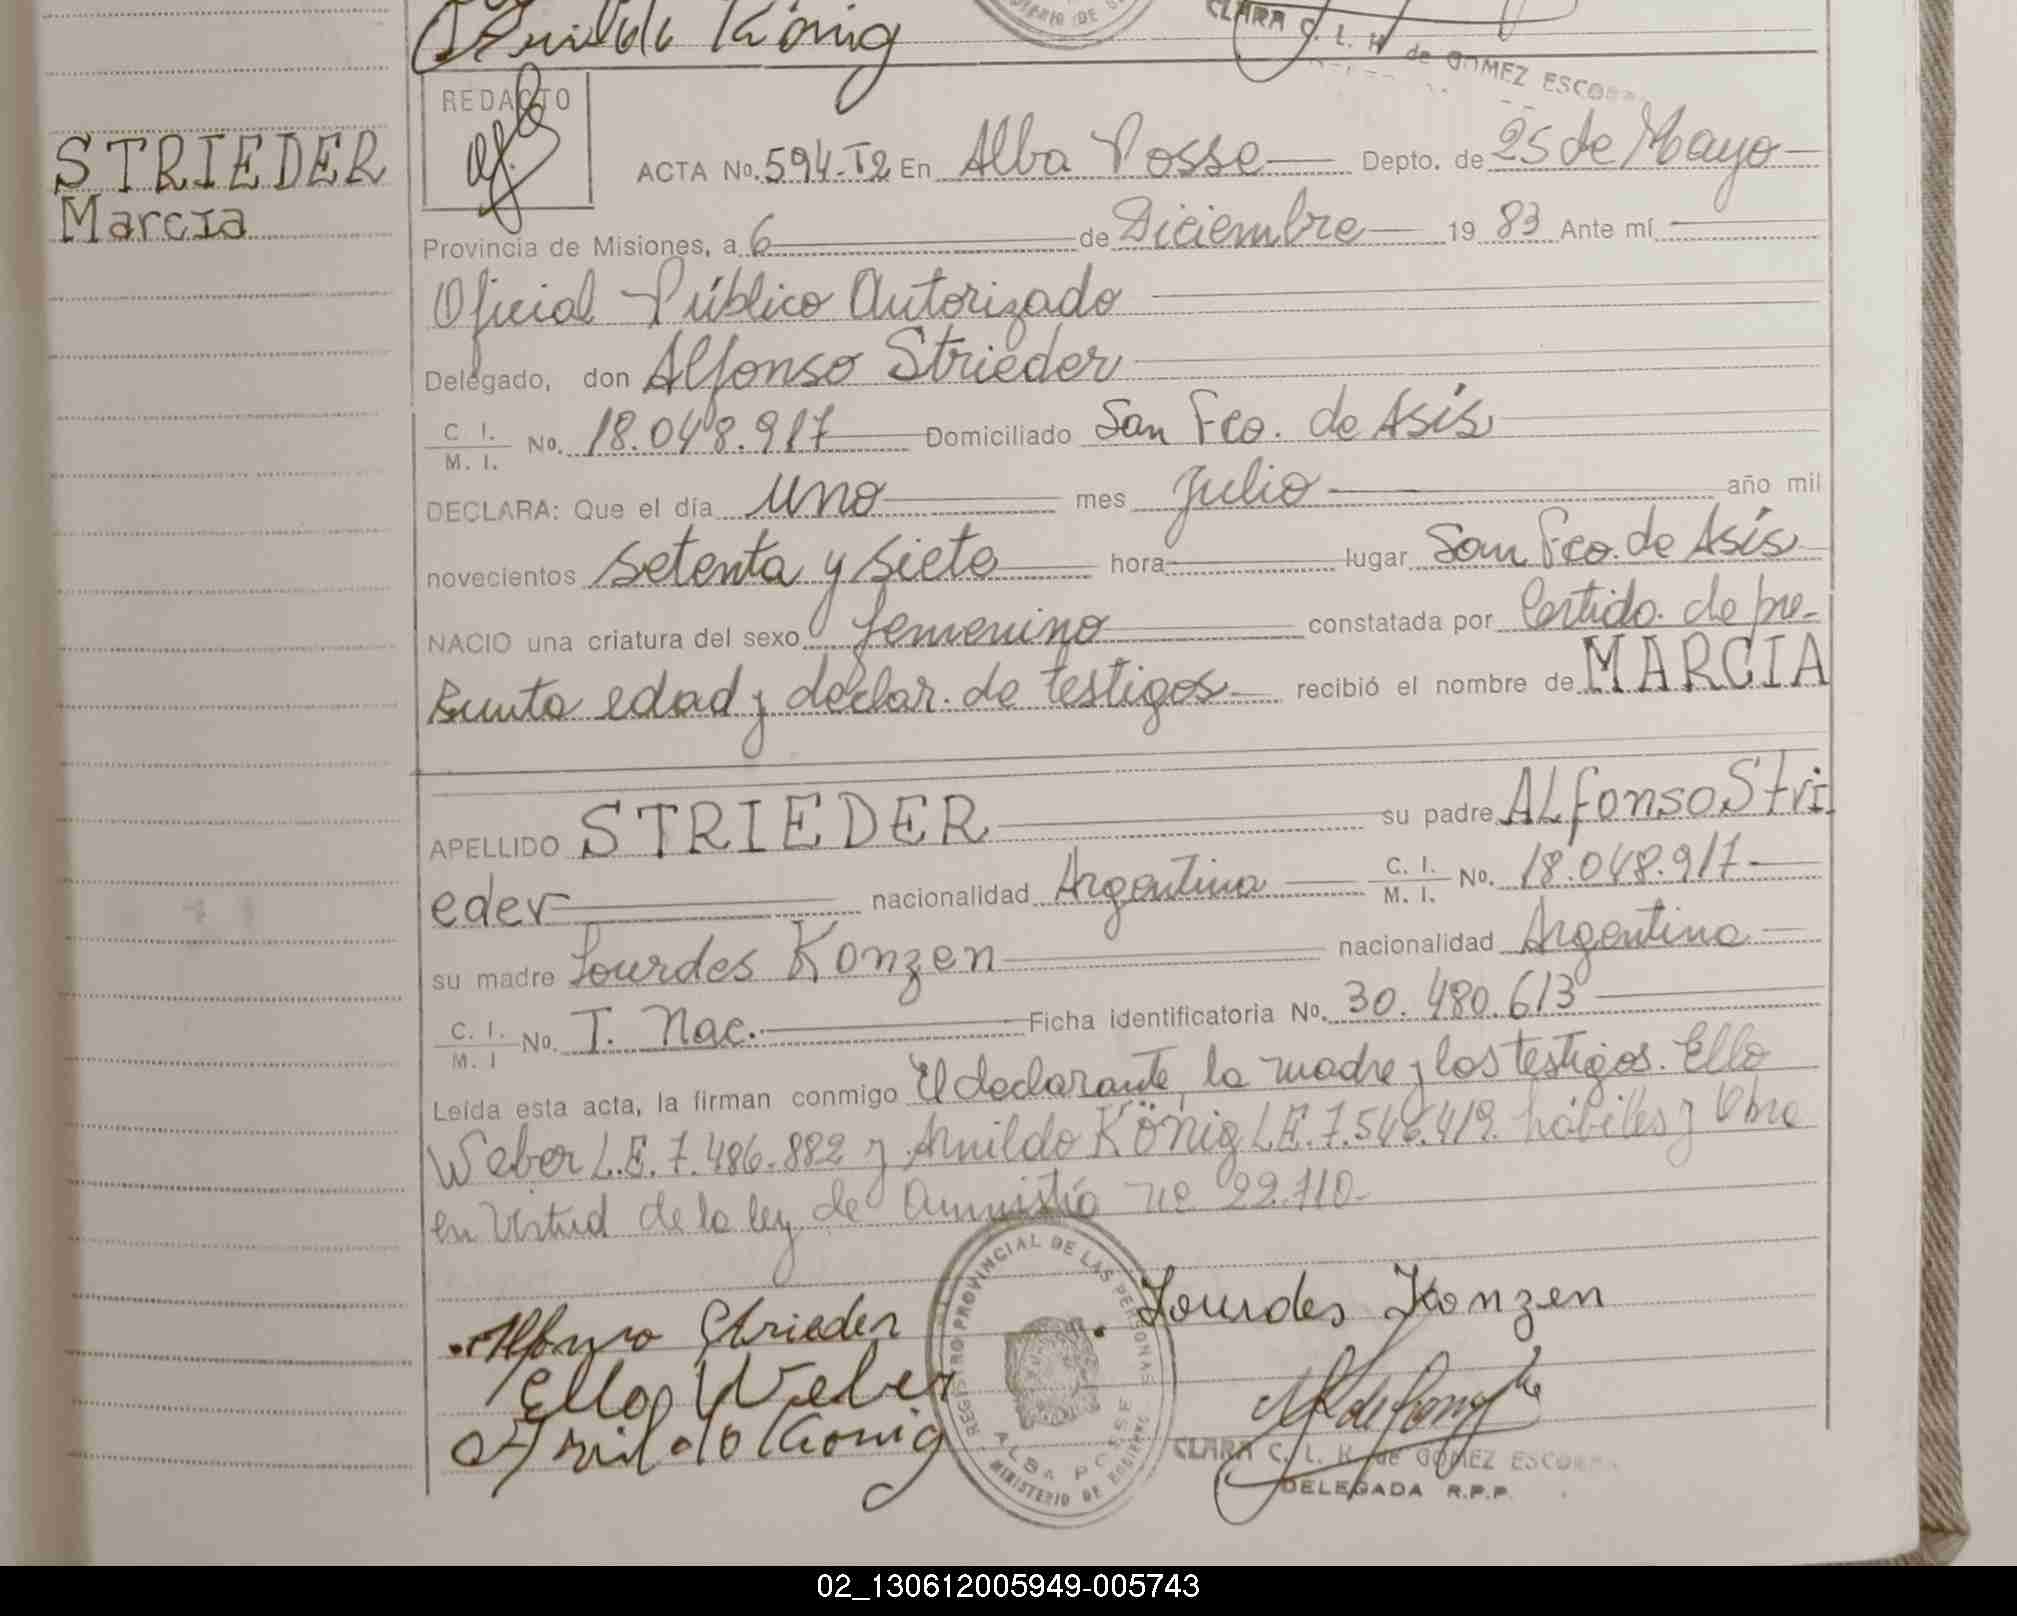 Arnildo König
CLARA C. L. H. de GOMEZ ESCOBAR
REDACTO
STRIEDER
Marcia
ACTA No. 594-T2 En Alba Posse Depto. de 25 de Mayo
Provincia de Misiones, a 6 de Diciembre 19 83 Ante mí
Oficial Público Autorizado
Delegado, don Alfonso Strieder
C. I. / M. I. No. 18.048.917 Domiciliado San Fco. de Asís
DECLARA: Que el día uno mes Julio año mil
novecientos setenta y siete hora lugar San Fco. de Asís
NACIO una criatura del sexo femenino constatada por Certido. de pre-
sunta edad y declar. de testigos recibió el nombre de MARCIA
APELLIDO STRIEDER su padre ALfonso Stri
eder nacionalidad Argentina C. I. / M. I. No. 18.048.917
su madre Lourdes Konzen nacionalidad Argentina
C. I. / M. I No. T. Nac. Ficha identificatoria No. 30.480.613
Leída esta acta, la firman conmigo El declarante, la madre y los testigos. Ello
Weber L.E. 7.486.882 y Arnildo König L.E. 7.546.419. hábiles y Obre
en Virtud de la ley de Amnistía no 22.110-
Alfonso Strieder
Lourdes Konzen
Ello Weber
Arnildo König
REGISTRO PROVINCIAL DE LAS PERSONAS
ALBA POSSE
MINISTERIO DE GOBIERNO
CLARA C. L. H. de GOMEZ ESCOBAR
DELEGADA R.P.P.
02_130612005949-005743